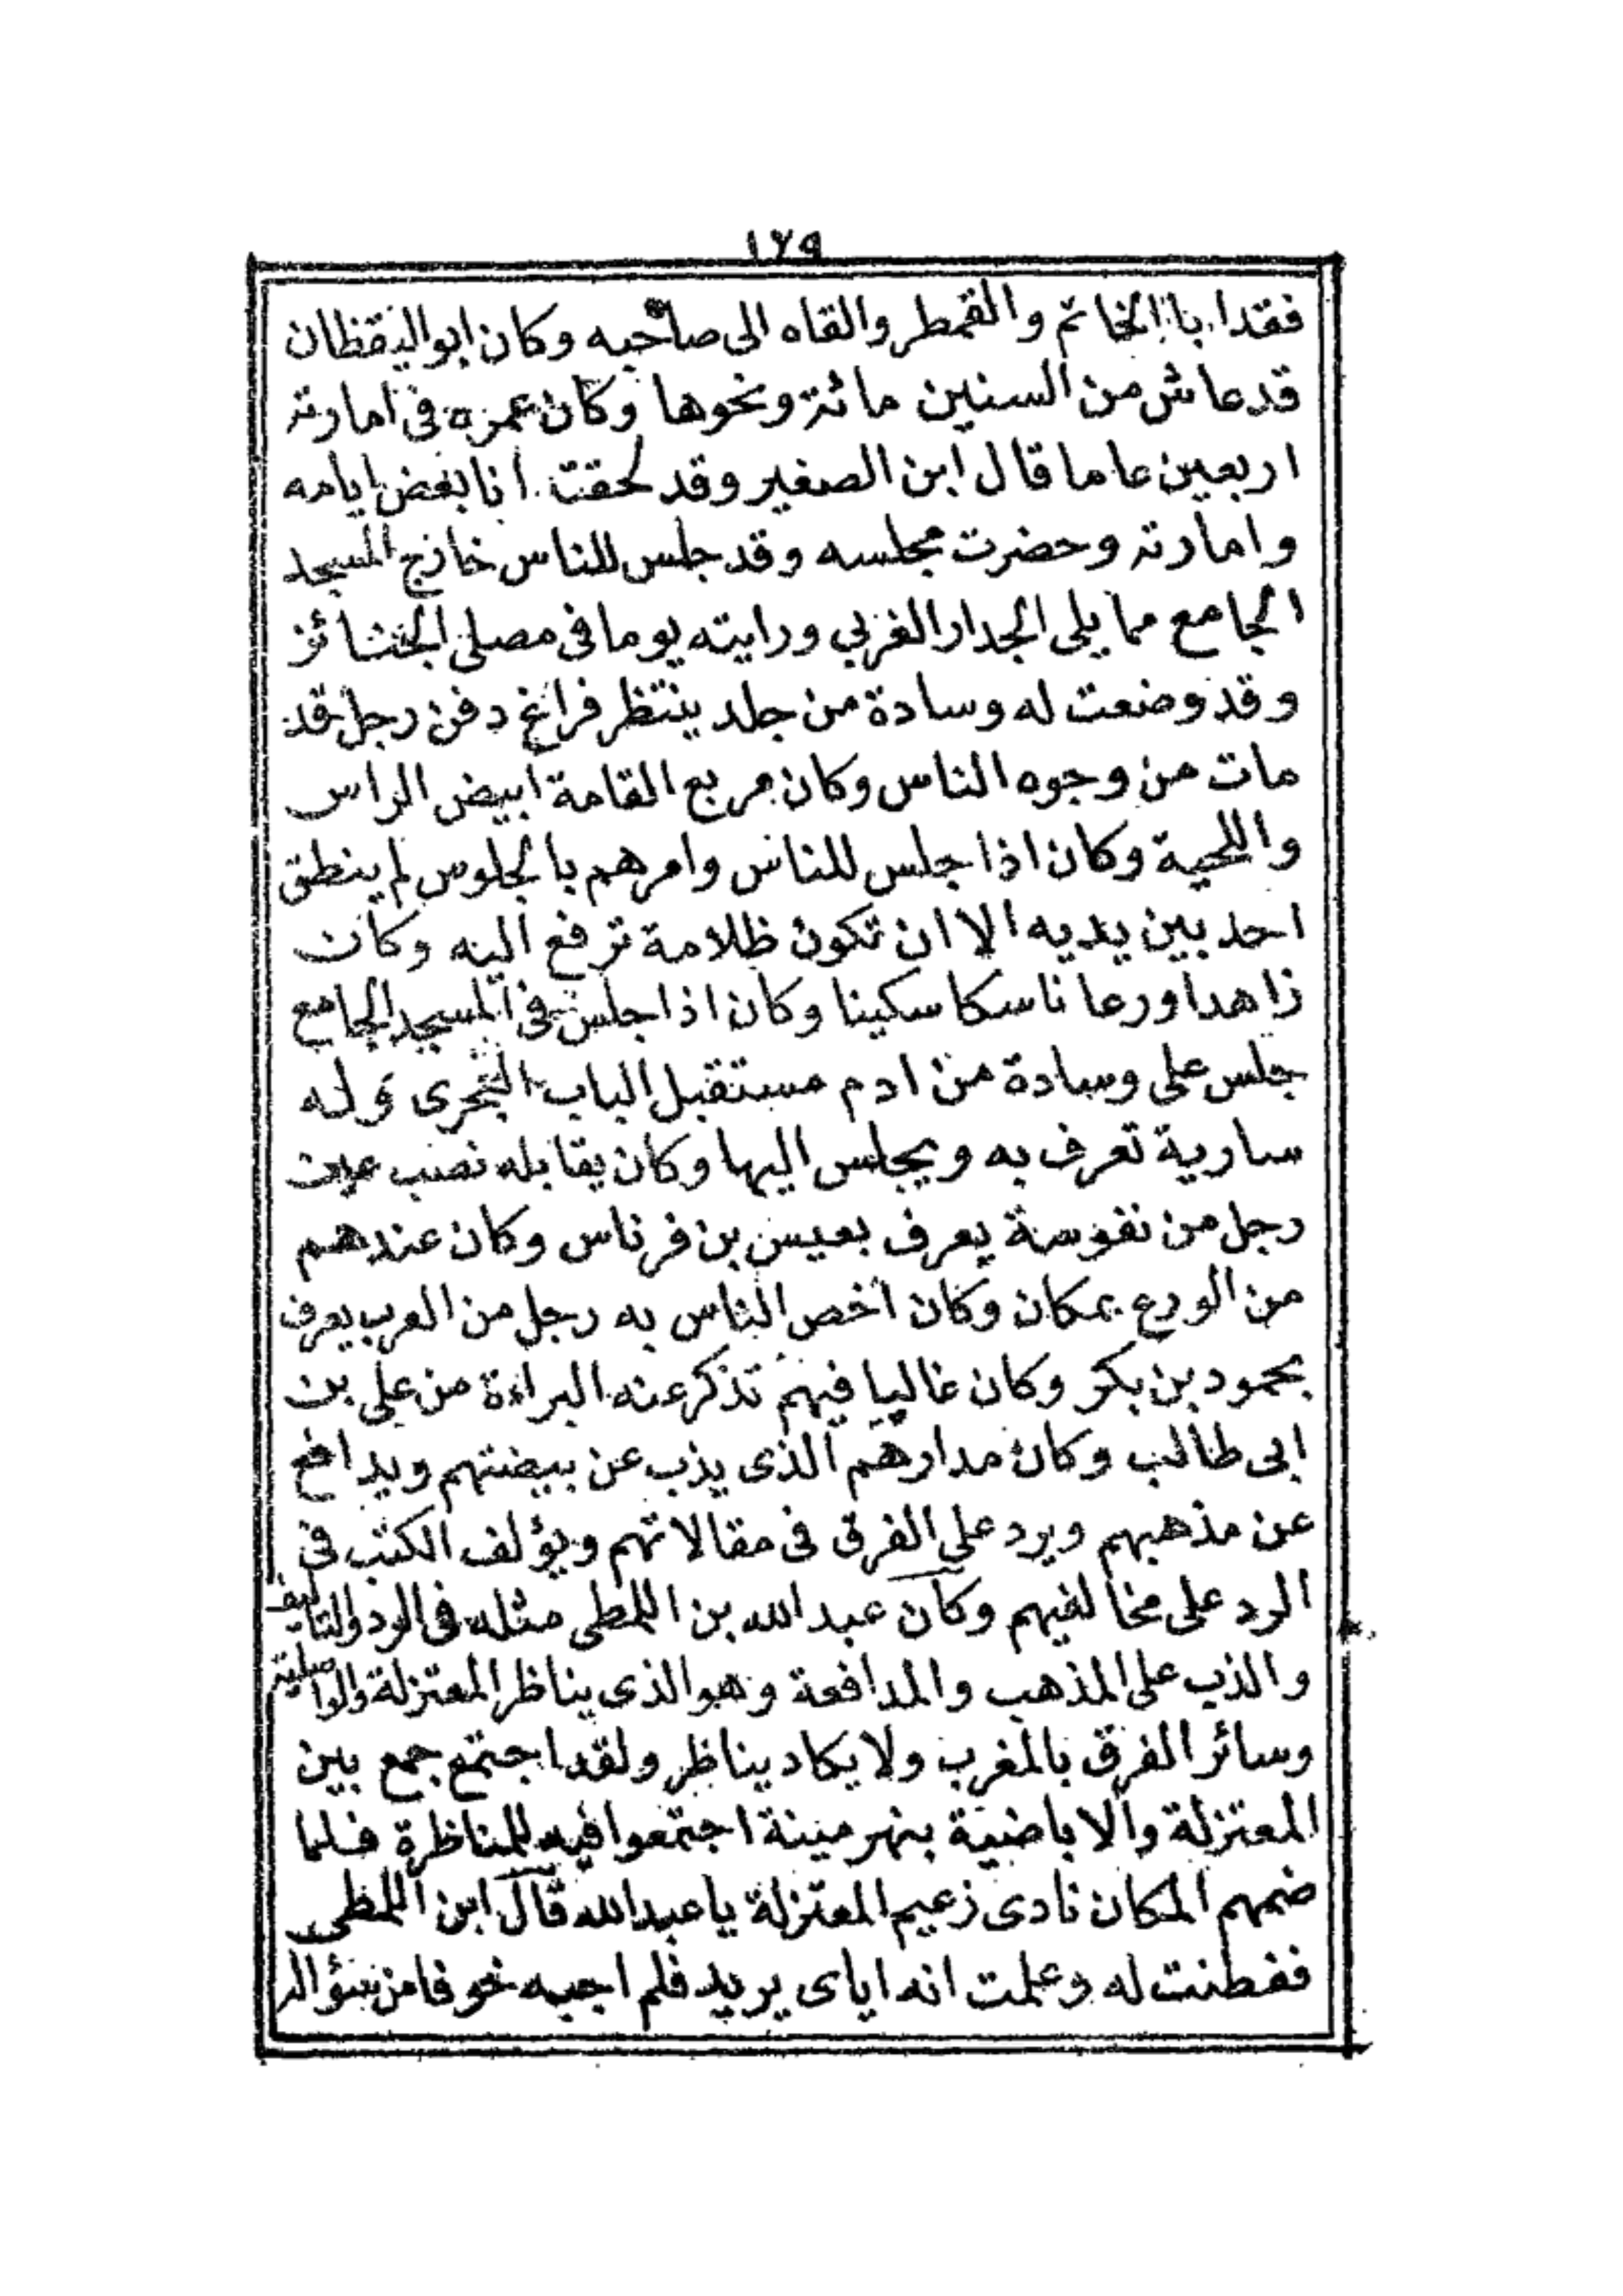 ١٢٩
فقدا باالخاتم والقمطر والقاه الى صاحبه وكان ابو اليقظان
قد عاش من السنين مائة ونحوها وكان عمره فى امارته
اربعين عاما قال ابن الصغير وقد لحقت انا بعض ايامه
وامارته وحضرت مجلسه وقد جلس للناس خارج المسجد
الجامع مما يلى الجدار الغربي ورايته يوما فى مصلى الجنائز
وقد وضعت له وسادة من جلد ينتظر فراغ دفن رجل قد
مات من وجوه الناس وكان مربع القامة ابيض الراس
واللحية وكان اذا جلس للناس وامرهم بالجلوس لم ينطق
احد بين يديه الا ان تكون ظلامة ترفع اليه وكان
زاهدا ورعا ناسكا سكينا وكان اذا جلس فى المسجد الجامع
جلس على وسادة من ادم مستقبل الباب البحرى وله
سارية تعرف به ويجلس اليها وكان يقابله نصب عين
رجل من نفوسة يعرف بعيس بن فرناس وكان عندهم
من الورع بمكان وكان اخص الناس به رجل من العرب يعرف
بحمود بن بكر وكان غاليا فيهم تذكر عنه البراءة من على بن
ابى طالب وكان مدارهم الذى يذب عن بيضتهم ويدافع
عن مذهبهم ويرد على الفرق فى مقالاتهم ويؤلف الكتب فى
الرد على مخالفيهم وكان عبد الله بن اللمطى مثله فى الرد والتاليف
والذب على المذهب والمدافعة وهو الذى يناظر المعتزلة والواصلية
وسائر الفرق بالمغرب ولا يكاد يناظر ولقد اجتمع جمع بين
المعتزلة والاباضية بنهر مينة اجتمعوا فيه للمناظرة فلما
ضمهم المكان نادى زعيم المعتزلة يا عبد الله قال ابن اللمطى
ففطنت له وعلمت انه اياى يريد فلم اجبه خوفا من سؤاله